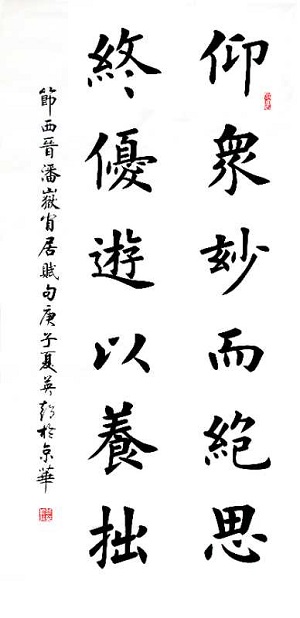 仰衆妙而絕思
終優遊以養拙
節西晉潘嶽閒居賦句庚子夏英於京華